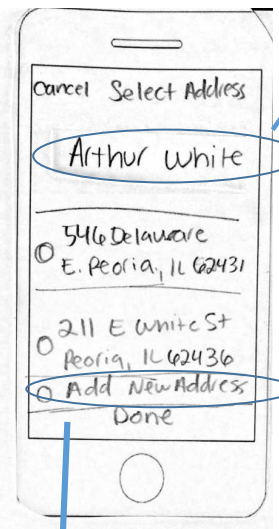 Cancel Select Address
Arthur White
546 Delaware
E. Peoria, IL 62431
211 E White St
Peoria, IL 62436
Add New Address
Done